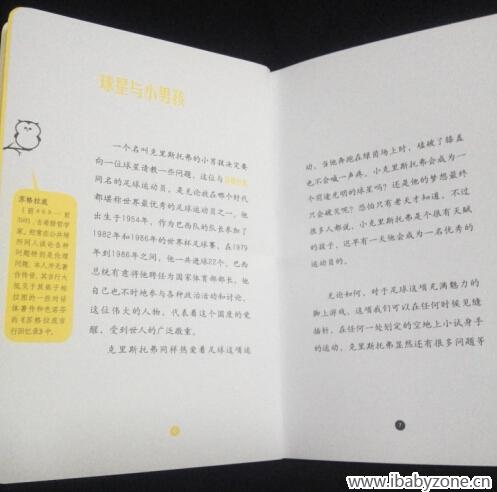 球星与小男孩
一个名叫克里斯托弗的小男孩决定要
向一位球星请教一些问题。这位与苏格拉底
同名的足球运动员，是无论放在哪个时代
都堪称世界最优秀的足球运动员之一。他
出生于1954年，作为巴西队的队长参加了
1982年和1986年的世界杯足球赛。在1979
年到1986年之间，他一共进球22个。巴西
总统有意将他聘任为国家体育部部长。他
自己也不时地参与各种政治活动和讨论。
这位伟大的人物，代表着这个国度的觉
醒，受到世人的广泛敬重。
克里斯托弗同样热爱着足球这项运
苏格拉底
家。经常在公共场
所同人谈论各种
问题特别是伦理
问题。本人并无著
作传世，其言行大
抵见于其弟子柏
拉图的一些对话
体著作和色诺芬
的《苏格拉底言
行回忆录》中。
动。当他奔跑在绿茵场上时，磕破了膝盖
也不会吭一声疼。小克里斯托弗会成为一
个前途光明的球星吗？还是他的梦想最终
只会破灭呢？恐怕只有老天才知道。不过
很多人都说，小克里斯托弗是个很有天赋
的孩子，迟早有一天他会成为一名优秀的
运动员的。
无论如何，对于足球这项充满魅力的
脚上游戏，这項我们可以在任何时候见缝
插针，在任何一处划定的空地上小试身手
的运动，克里斯托弗显然还有很多问题等
7
www.ibabyzone.cn